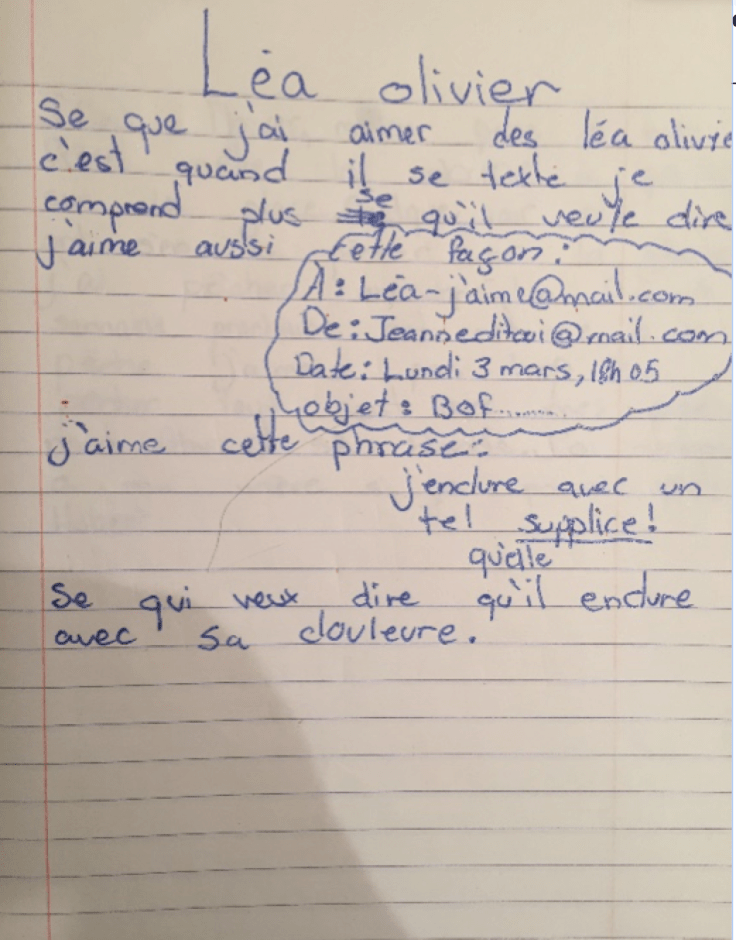 Léa olivier
Se que j'ai aimer des léa olivie
c'est quand il se texte je
comprend plus se qu'il veule dire
j'aime aussi cette façon:
A: Léa-j'aime@mail.com
De: Jeanneditoui@mail.com
Date: Lundi 3 mars, 18h05
objet: Bof........
j'aime cette phrase:
j'endure avec un
tel supplice!
qu'elle
Se qui veux dire qu'il endure
avec sa douleure.